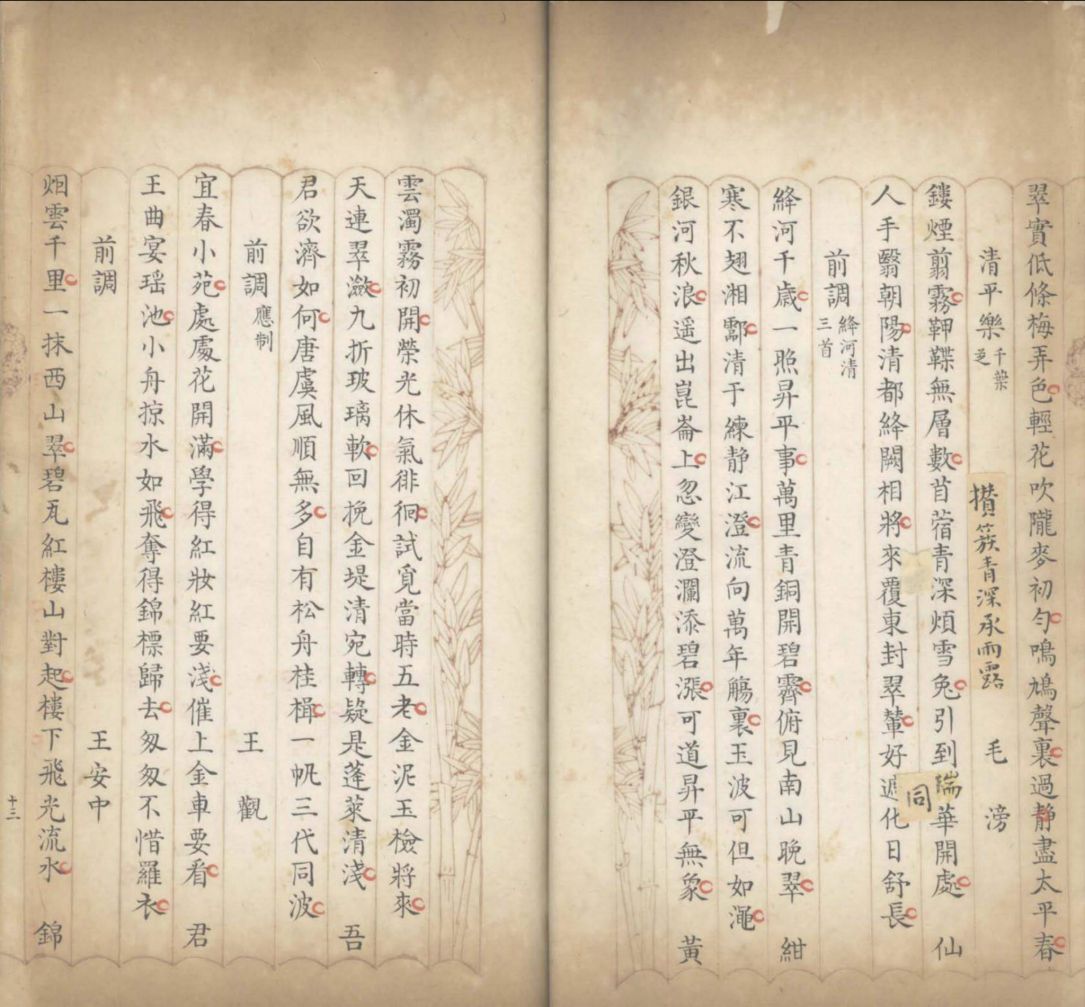 翠實低條梅弄色輕花吹隴麥初勻鳴鳩聲裏過静盡太平春
清平樂 千葉芝 毛滂
攢簇青深承雨露
鏤煙翦霧鞞鞢無層數苜蓿青深煩雪兔引到瑞華開處 仙
同
人手翳朝陽清都絳闕相將來覆東封翠輦好遲化日舒長
前調 絳河清三首
絳河千歲一照昇平事萬里青銅開碧霽俯見南山晚翠 紺
寒不翅湘酃清于練静江澄流向萬年觴裏玉波可但如澠
銀河秋浪遥出崑崙上忽變澄瀾添碧漲可道昇平無象 黃
雲濁霧初開榮光休氣徘徊試覓當時五老金泥玉檢將來
天連翠瀲九折玻璃軟回挽金堤清宛轉疑是蓬萊清淺 吾
君欲濟如何唐虞風順無多自有松舟桂楫一帆三代同波
前調 應制 王觀
宜春小苑處處花開滿學得紅妝紅要淺催上金車要看 君
王曲宴瑶池小舟掠水如飛奪得錦標歸去匆匆不惜羅衣
前調 王安中
烟雲千里一抹西山翠碧瓦紅樓山對起樓下飛光流水 錦
十三